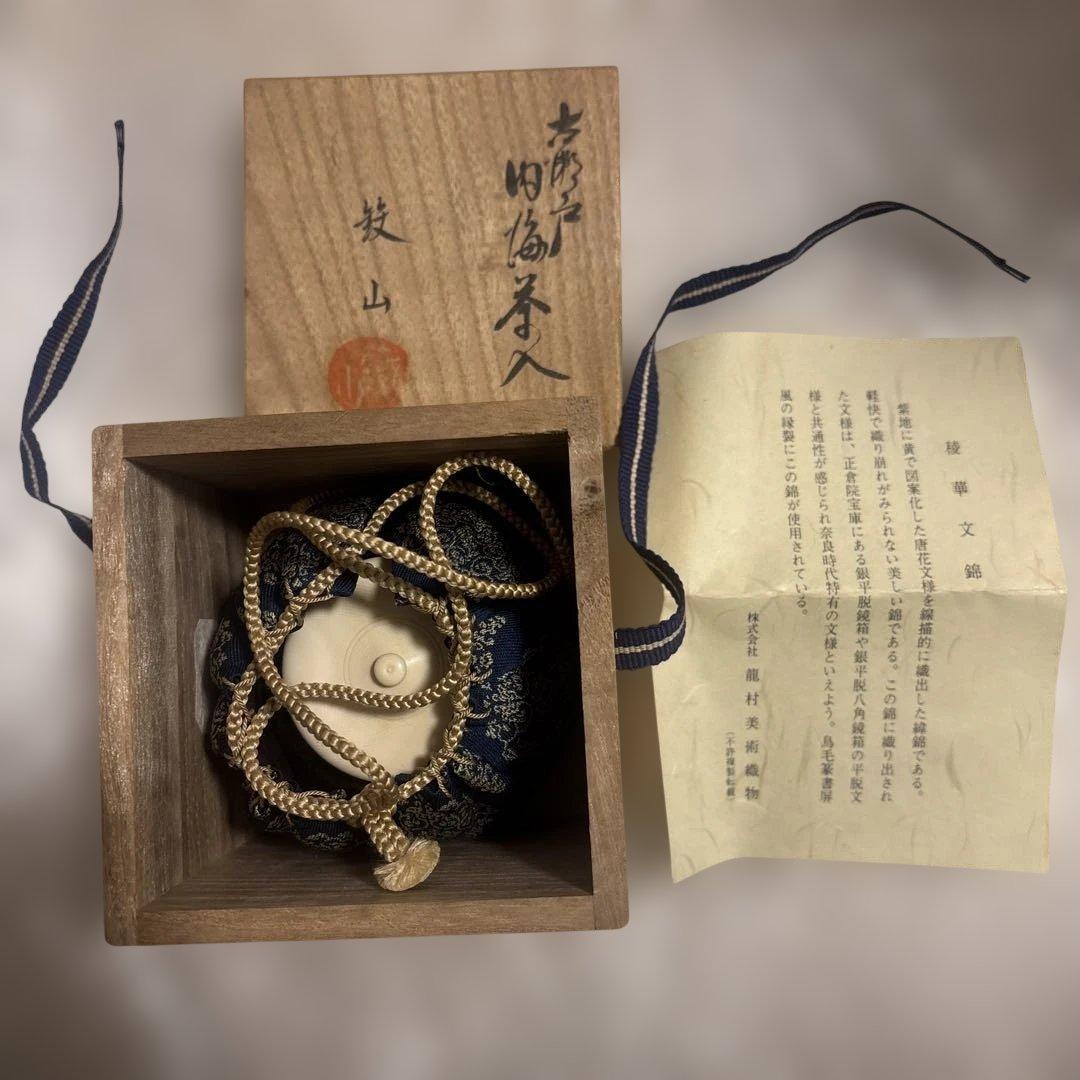 古瀬戸
内海茶入
山
稜華文錦
紫地に黄で図案化した唐花文様を線描的に織出した緯錦である。
軽快で織り崩れがみられない美しい錦である。この錦に織り出され
た文様は、正倉院宝庫にある銀平脱鏡箱や銀平脱八角鏡箱の平脱文
様と共通性が感じられ奈良時代特有の文様といえよう。鳥毛篆書屏
風の縁製にこの錦が使用されている。
株式会社 龍村美術織物
(不許複製転載)